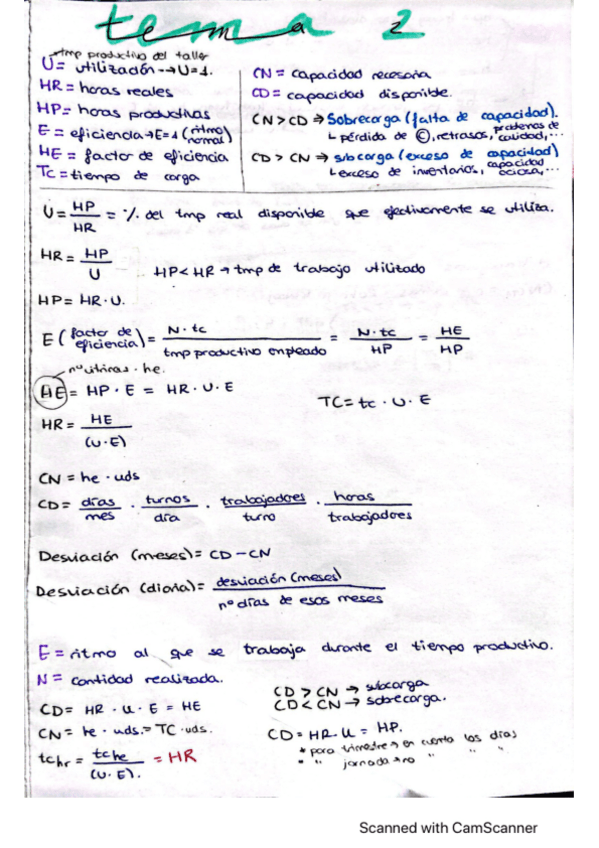 tema 2
tmp productivo del taller
U = utilización → U=1.
HR = horas reales
HP = horas productivas
E = eficiencia → E=1 (ritmo normal)
HE = factor de eficiencia
TC = tiempo de carga
CN = capacidad necesaria
CD = capacidad disponible.
CN > CD ⇒ Sobrecarga (falta de capacidad).
↳ pérdida de ©, retrasos, problemas de calidad, ...
CD > CN ⇒ subcarga (exceso de capacidad)
↳ exceso de inventarios, capacidad ociosa, ...
U = HP / HR = % del tmp real disponible que efectivamente se utiliza.
HR = HP / U    HP < HR → tmp de trabajo utilizado
HP = HR · U.
E (factor de eficiencia) = N · tc / tmp productivo empleado = N · tc / HP = HE / HP
HE = HP · E = HR · U · E
TC = tc · U · E
HR = HE / (U·E)
CN = he · uds
CD = días / mes · turnos / día · trabajadores / turno · horas / trabajadores
Desviación (meses) = CD - CN
Desviación (diaria) = desviación (meses) / nº días de esos meses
E = ritmo al que se trabaja durante el tiempo productivo.
N = cantidad realizada.
CD > CN → subcarga
CD < CN → sobrecarga.
CD = HR · U · E = HE
CN = he · uds. = TC · uds.
CD = HR · U = HP.
* para trimestre → en cuenta los días
* " jornada → no " "
tchr = tche / (U·E). = HR
Scanned with CamScanner